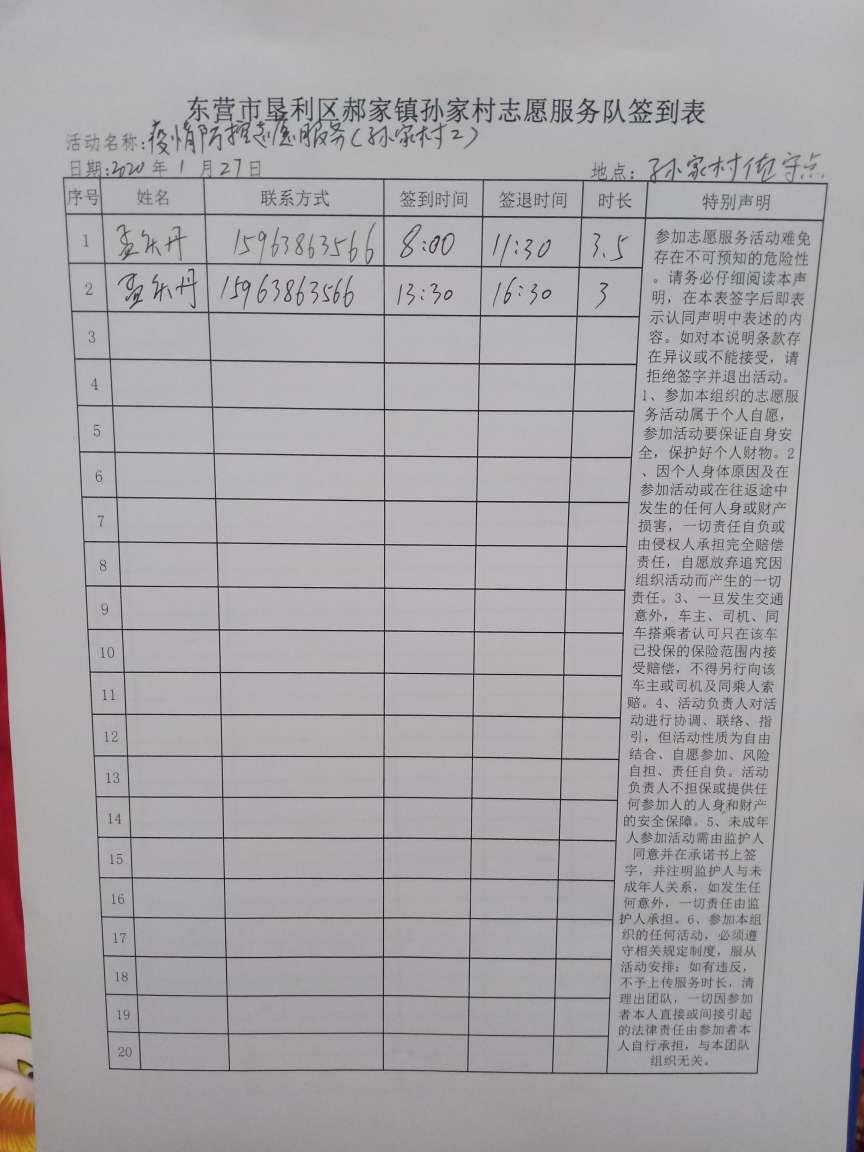 东营市垦利区郝家镇孙家村志愿服务队签到表
活动名称:疫情防控志愿服务(孙家村2)
日期:2020年1月27日 地点:孙家村值守点
序号 姓名 联系方式 签到时间 签退时间 时长 特别声明
1 孟乐丹 15963863566 8:00 11:30 3.5
2 孟乐丹 15963863566 13:30 16:30 3
3
4
5
6
7
8
9
10
11
12
13
14
15
16
17
18
19
20
参加志愿服务活动难免
存在不可预知的危险性
。请务必仔细阅读本声
明,在本表签字后即表
示认同声明中表述的内
容。如对本说明条款存
在异议或不能接受,请
拒绝签字并退出活动。
1、参加本组织的志愿服
务活动属于个人自愿,
参加活动要保证自身安
全,保护好个人财物。2
、因个人身体原因及在
参加活动或在往返途中
发生的任何人身或财产
损害,一切责任自负或
由侵权人承担完全赔偿
责任,自愿放弃追究因
组织活动而产生的一切
责任。3、一旦发生交通
意外,车主、司机、同
车搭乘者认可只在该车
已投保的保险范围内接
受赔偿,不得另行向该
车主或司机及同乘人索
赔。4、活动负责人对活
动进行协调、联络、指
引,但活动性质为自由
结合、自愿参加、风险
自担、责任自负。活动
负责人不担保或提供任
何参加人的人身和财产
的安全保障。5、未成年
人参加活动需由监护人
同意并在承诺书上签
字,并注明监护人与未
成年人关系,如发生任
何意外,一切责任由监
护人承担。6、参加本组
织的任何活动,必须遵
守相关规定制度,服从
活动安排;如有违反,
不予上传服务时长,清
理出团队,一切因参加
者本人直接或间接引起
的法律责任由参加者本
人自行承担,与本团队
组织无关。